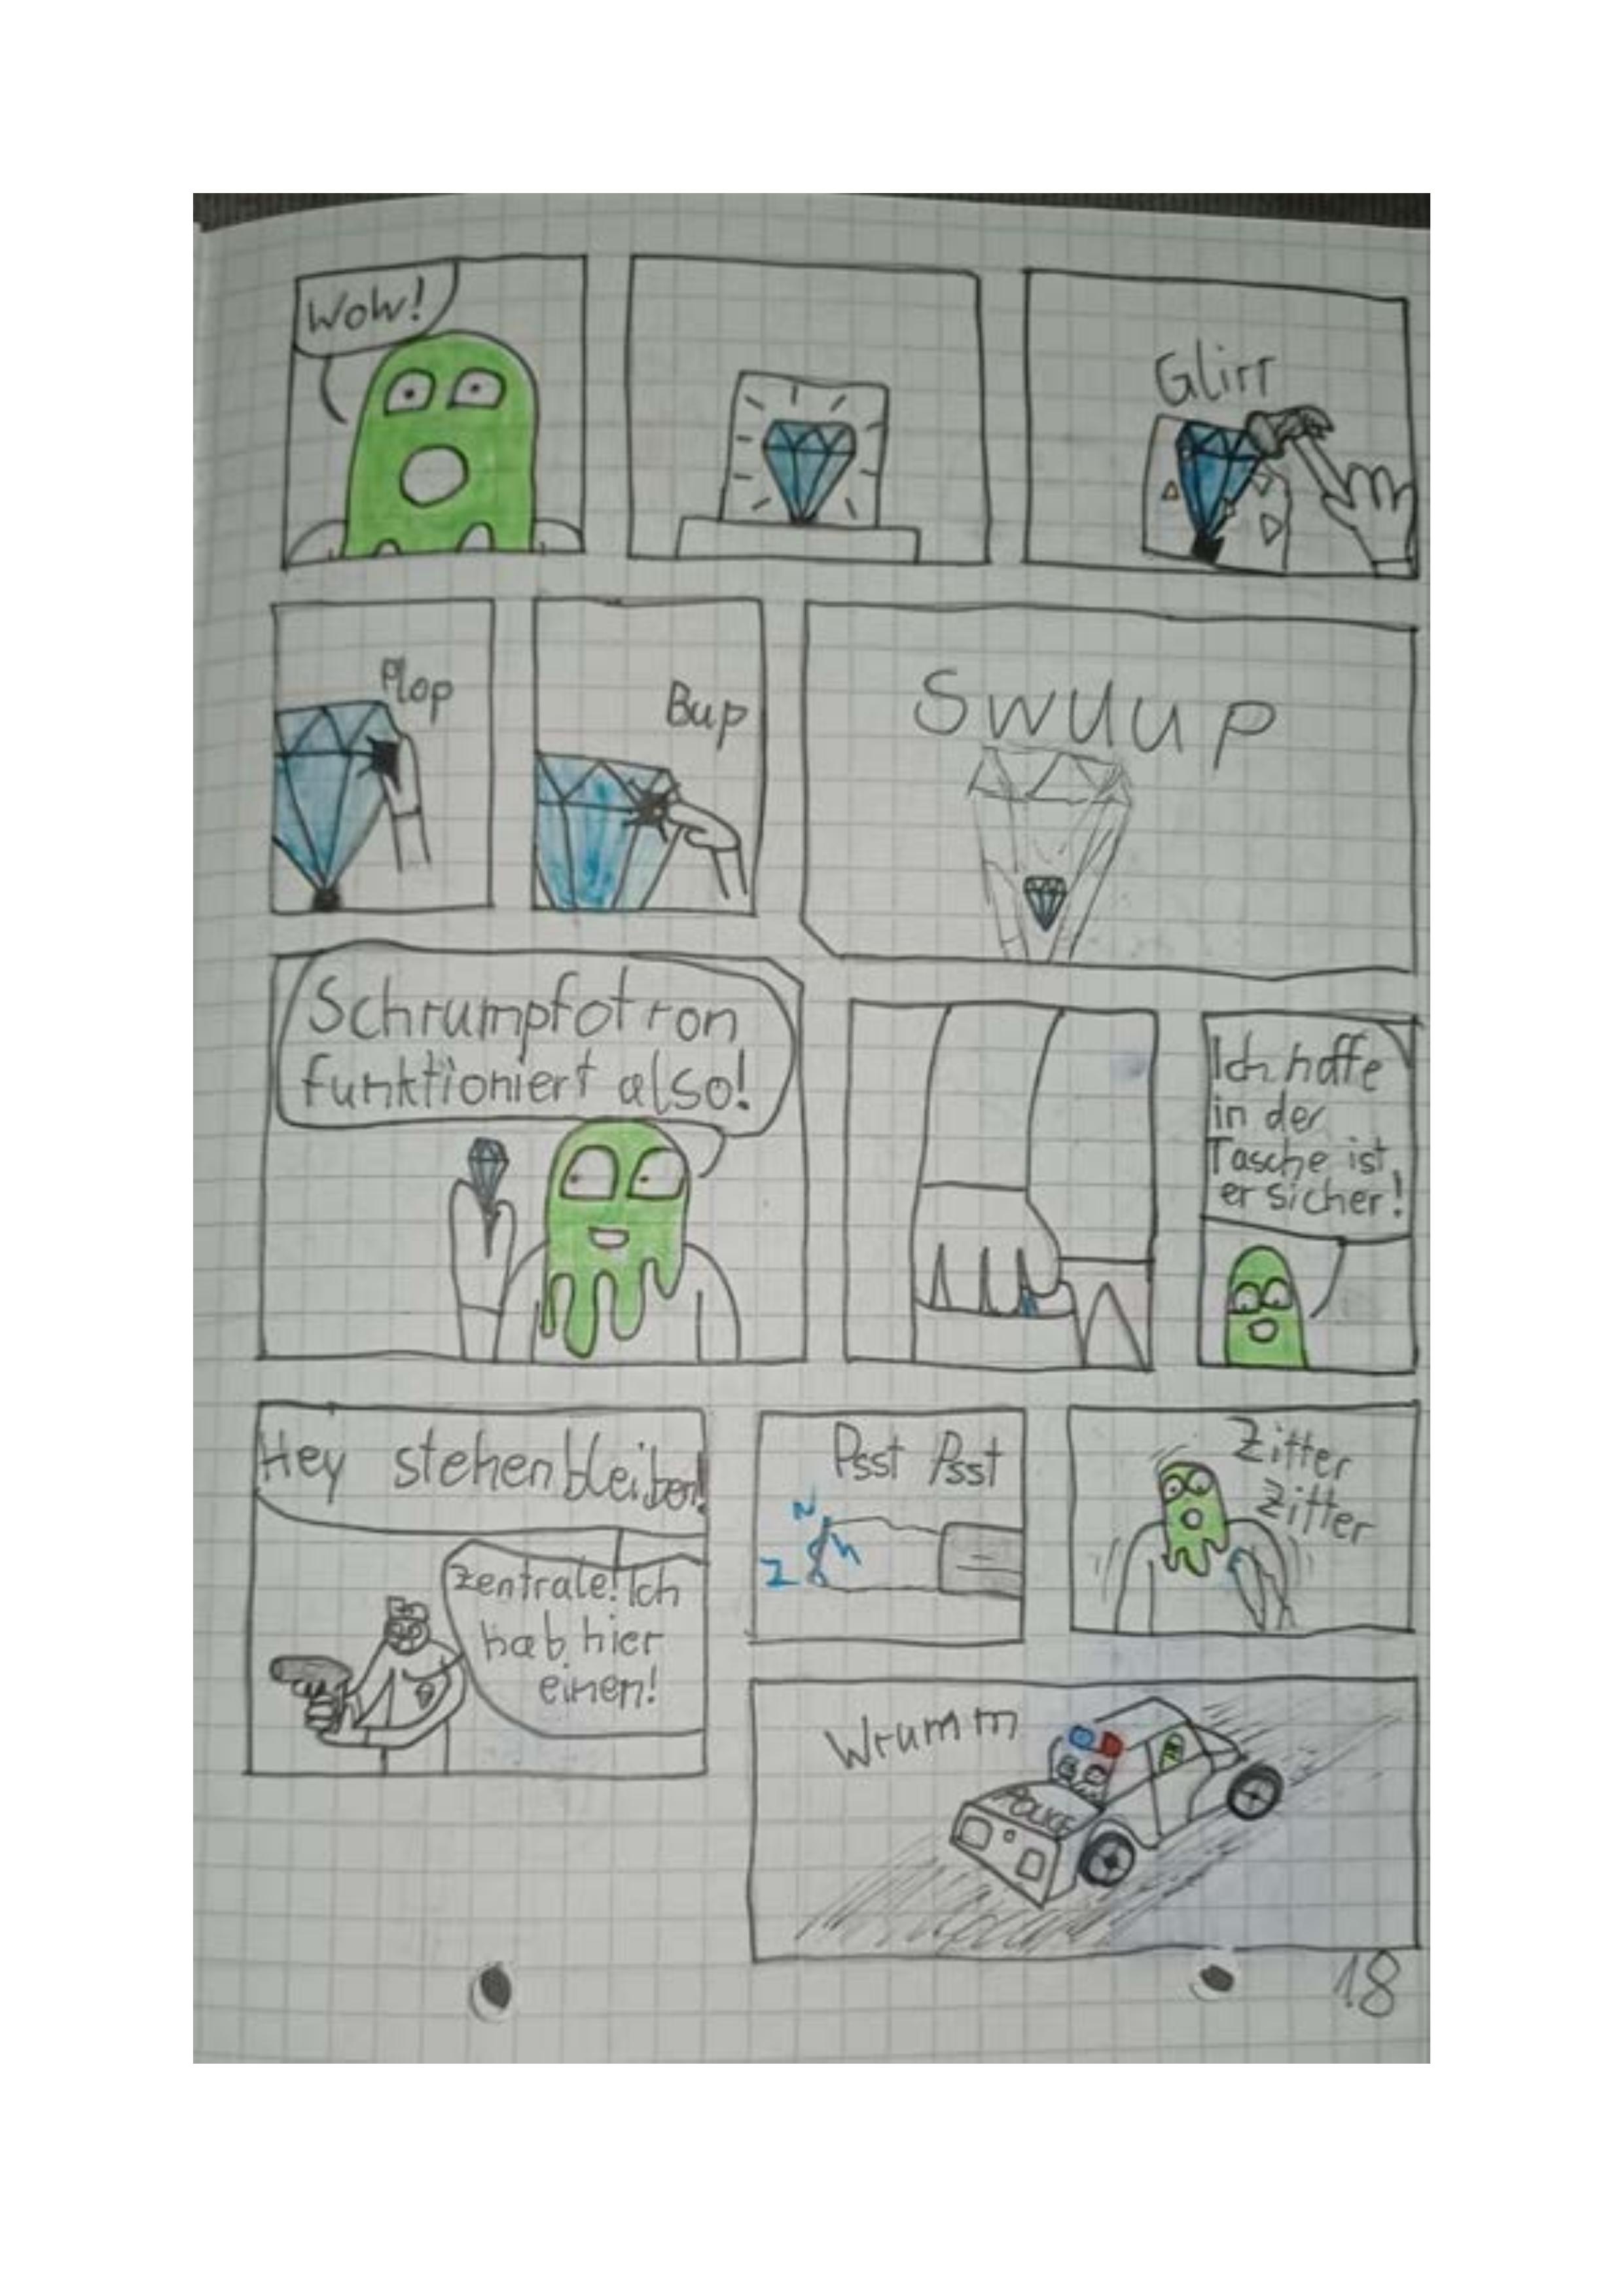 Wow!
Glirr
Plop
Bup
Swuup
Schrumpfotron
funktioniert also!
Ich hoffe
in der
Tasche ist
er sicher!
Hey stehenbleiben!
Zentrale! Ich
hab hier
einen!
Psst Psst
Zitter
Zitter
Wrumm
POLICE
18